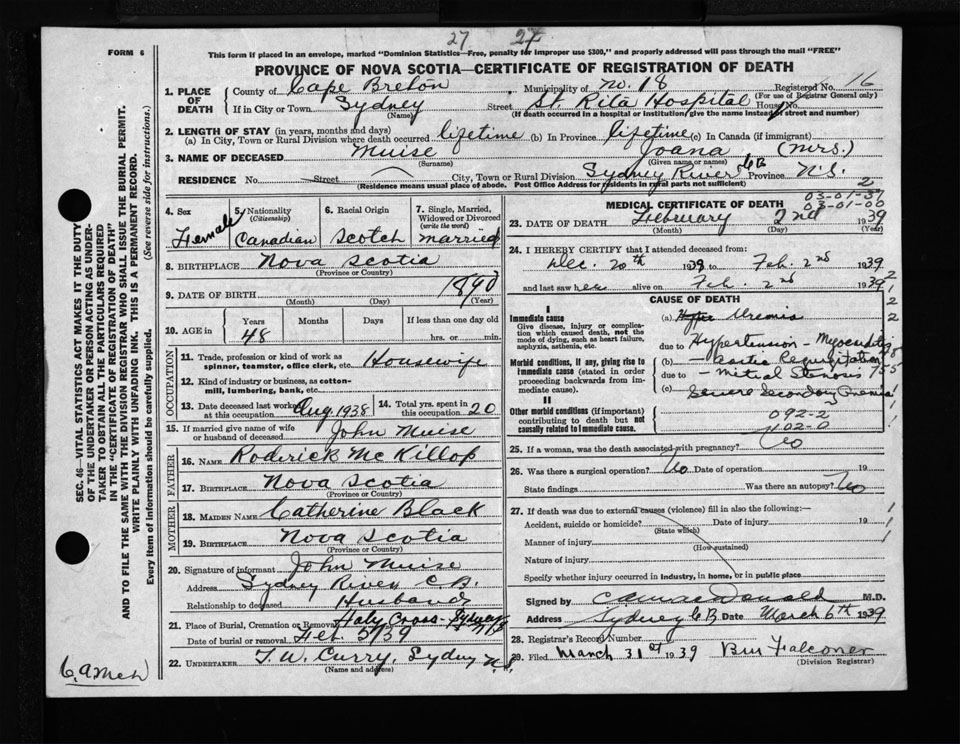 27 27
FORM 6
This form if placed in an envelope, marked "Dominion Statistics—Free, penalty for improper use $300," and properly addressed will pass through the mail "FREE"
PROVINCE OF NOVA SCOTIA—CERTIFICATE OF REGISTRATION OF DEATH
1. PLACE OF DEATH County of Cape Breton Municipality of No. 18 Registered No. 16
(For use of Registrar General only)
If in City or Town Sydney Street St Rita Hospital House No.
(Name) (If death occurred in a hospital or institution give the name instead of street and number)
2. LENGTH OF STAY (in years, months and days)
(a) In City, Town or Rural Division where death occurred lifetime (b) In Province lifetime (c) In Canada (if immigrant)
3. NAME OF DECEASED Muise Joana (Mrs.)
(Surname) (Given name or names)
RESIDENCE No. Street City, Town or Rural Division Sydney River CB Province N.S.
(Residence means usual place of abode. Post Office Address for residents in rural parts not sufficient) 2
4. Sex Female
5. Nationality (Citizenship) Canadian
6. Racial Origin Scotch
7. Single, Married, Widowed or Divorced (write the word) married
8. BIRTHPLACE Nova Scotia
(Province or Country)
9. DATE OF BIRTH 1890
(Month) (Day) (Year)
10. AGE in Years Months Days If less than one day old
48 hrs. or min.
OCCUPATION
11. Trade, profession or kind of work as spinner, teamster, office clerk, etc. Housewife
12. Kind of industry or business, as cotton-mill, lumbering, bank, etc.
13. Date deceased last worked at this occupation Aug 1938 14. Total yrs. spent in this occupation 20
15. If married give name of wife or husband of deceased John Muise
FATHER
16. NAME Roderick McKillop
17. BIRTHPLACE Nova Scotia
(Province or Country)
MOTHER
18. MAIDEN NAME Catherine Black
19. BIRTHPLACE Nova Scotia
(Province or Country)
20. Signature of informant John Muise
Address Sydney River C B.
Relationship to deceased Husband
21. Place of Burial, Cremation or Removal Holy Cross - Sydney
Date of burial or removal Feb. 5/39
22. UNDERTAKER T. W. Curry, Sydney N.S.
(Name and address)
MEDICAL CERTIFICATE OF DEATH
03-01-37
03-01-00
23. DATE OF DEATH February 2nd 1939
(Month) (Day) (Year)
24. I HEREBY CERTIFY that I attended deceased from:
Dec. 20th 1939 to Feb. 2nd 1939
and last saw her alive on Feb. 2nd 1939
CAUSE OF DEATH
I
Immediate cause
Give disease, injury or complication which caused death, not the mode of dying, such as heart failure, asphyxia, asthenia, etc.
(a) Uremia
due to Hypertension - Myocarditis
Morbid conditions, if any, giving rise to immediate cause (stated in order proceeding backwards from immediate cause).
(b) - Aortic Regurgitation
due to - Mitral Stenosis
(c) Severe Secondary Anemia
II
Other morbid conditions (if important) contributing to death but not causally related to immediate cause.
092-2
102-0
25. If a woman, was the death associated with pregnancy? No
26. Was there a surgical operation? No Date of operation 19
State findings Was there an autopsy? No
27. If death was due to external causes (violence) fill in also the following:—
Accident, suicide or homicide? Date of injury 19
(State which)
Manner of injury
(How sustained)
Nature of injury
Specify whether injury occurred in industry, in home, or in public place
Signed by M.D.
Address Sydney C.B. Date March 6th 1939
28. Registrar's Record Number
29. Filed March 31st 1939 Falconer
(Division Registrar)
SEC. 46—VITAL STATISTICS ACT MAKES IT THE DUTY
OF THE UNDERTAKER OR PERSON ACTING AS UNDER-
TAKER TO OBTAIN ALL THE PARTICULARS REQUIRED
IN THE "CERTIFICATE OF REGISTRATION OF DEATH"
AND TO FILE THE SAME WITH THE DIVISION REGISTRAR WHO SHALL ISSUE THE BURIAL PERMIT.
WRITE PLAINLY WITH UNFADING INK. THIS IS A PERMANENT RECORD.
Every item of information should be carefully supplied. (See reverse side for instructions.)